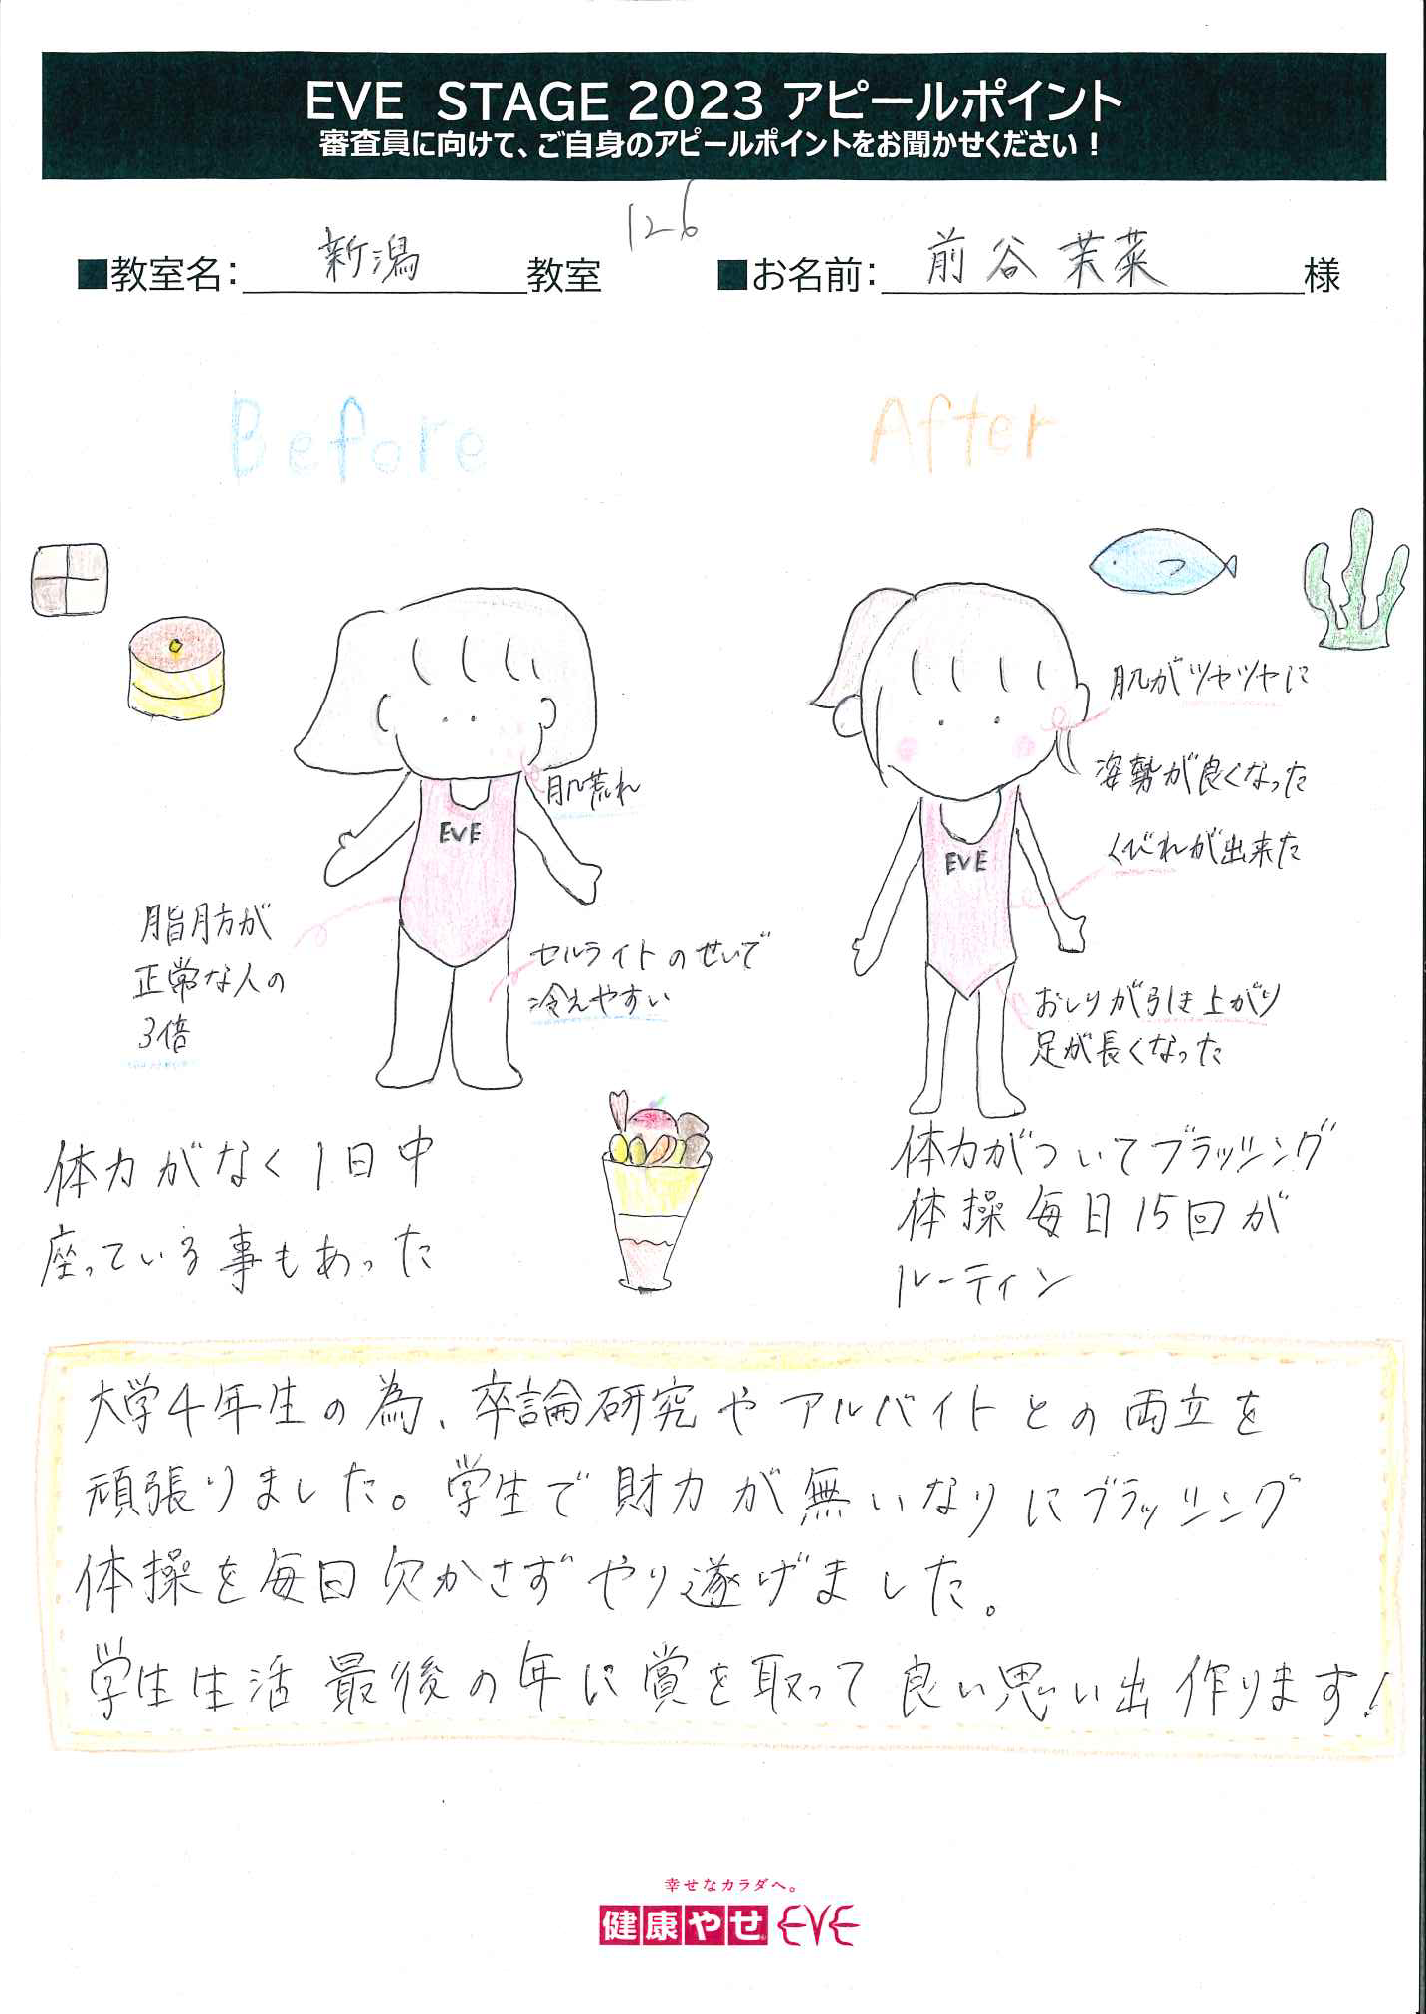 EVE STAGE 2023 アピールポイント
審査員に向けて、ご自身のアピールポイントをお聞かせください！
126
■教室名： 新潟 教室
■お名前： 前谷 茉菜 様
Before
After
肌荒れ
EVE
脂肪が
正常な人の
3倍
セルライトのせいで
冷えやすい
体力がなく1日中
座っている事もあった
肌がツヤツヤに
姿勢が良くなった
くびれが出来た
EVE
おしりが引き上がり
足が長くなった
体力がついてブラッシング
体操毎日15回が
ルーティン
大学4年生の為、卒論研究やアルバイトとの両立を
頑張りました。学生で財力が無いなりにブラッシング
体操を毎日欠かさずやり遂げました。
学生生活最後の年に賞を取って良い思い出作ります!
幸せなカラダへ。
健康やせ EVE